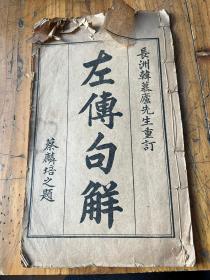 長洲韓慕廬先生重訂
左傳句解
蔡麟培之題